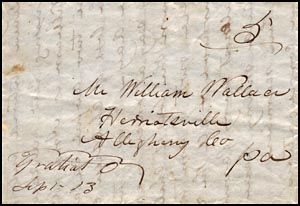 5
Mr William Wallace
Herriotsville
Allegheny Co
pa
Gratiot O
Sept 13